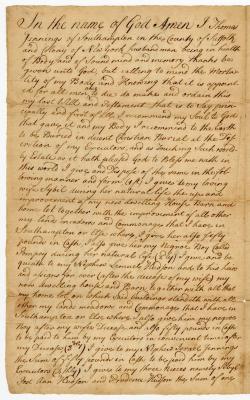 In the name of God Amen I Thomas
Jennings of Southampton in the County of Suffolk
and Colony of New York husbandman being in health
of Body and of Sound mind and memory thanks be
given unto God, but calling to mind the Mortality
of my Body and Knowing that it is appointed
for all men once to die do make and ordain this
my last Will and Testament that is to Say principally
and first of all, I recommend my Soul to God
that gave it and my Body I recommend to the Earth
to be Buried in decent Christian Burial at the Discretion
of my Executors, and as touching Such worldly
Estate as it hath pleased God to Bless me with in
this world I give and Dispose of the same in the following
manner and form I give to my loving
wife Sybil during her natural life the use and
improvement of my new dwelling House Barn and
home lot together with the improvement of all other
my land meadows and Commonages that I have in
Southampton or Else where I give her also Fifty
pounds in Cash. I also give her my Negroe Boy Called
Pompey during her natural life I give and bequeath
to my Nephew Samuel Hudson and to his heirs
and assigns for ever (after the decease of my wife) my
now dwelling house and Barn together with all that
my home lot on which said buildings stand with all
other my land meadows and Commonages that I have in
Southampton or Else where I also give him my negroe
Boy after my wifes Decease and also fifty pounds in Cash
to be paid to him by my Executors in convenient time after
my Decease I give to my Nephew Jennings
the Sum of fifty pounds in Cash to be paid him by my
Executors I give to my three nieces namely
Ann Hudson and Hudson the Sum of